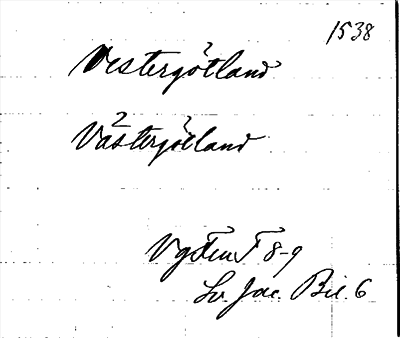 1538
Vestergötland
Västergötland
Vg Fen F 8-9
Lv. Jac. Bil. 6